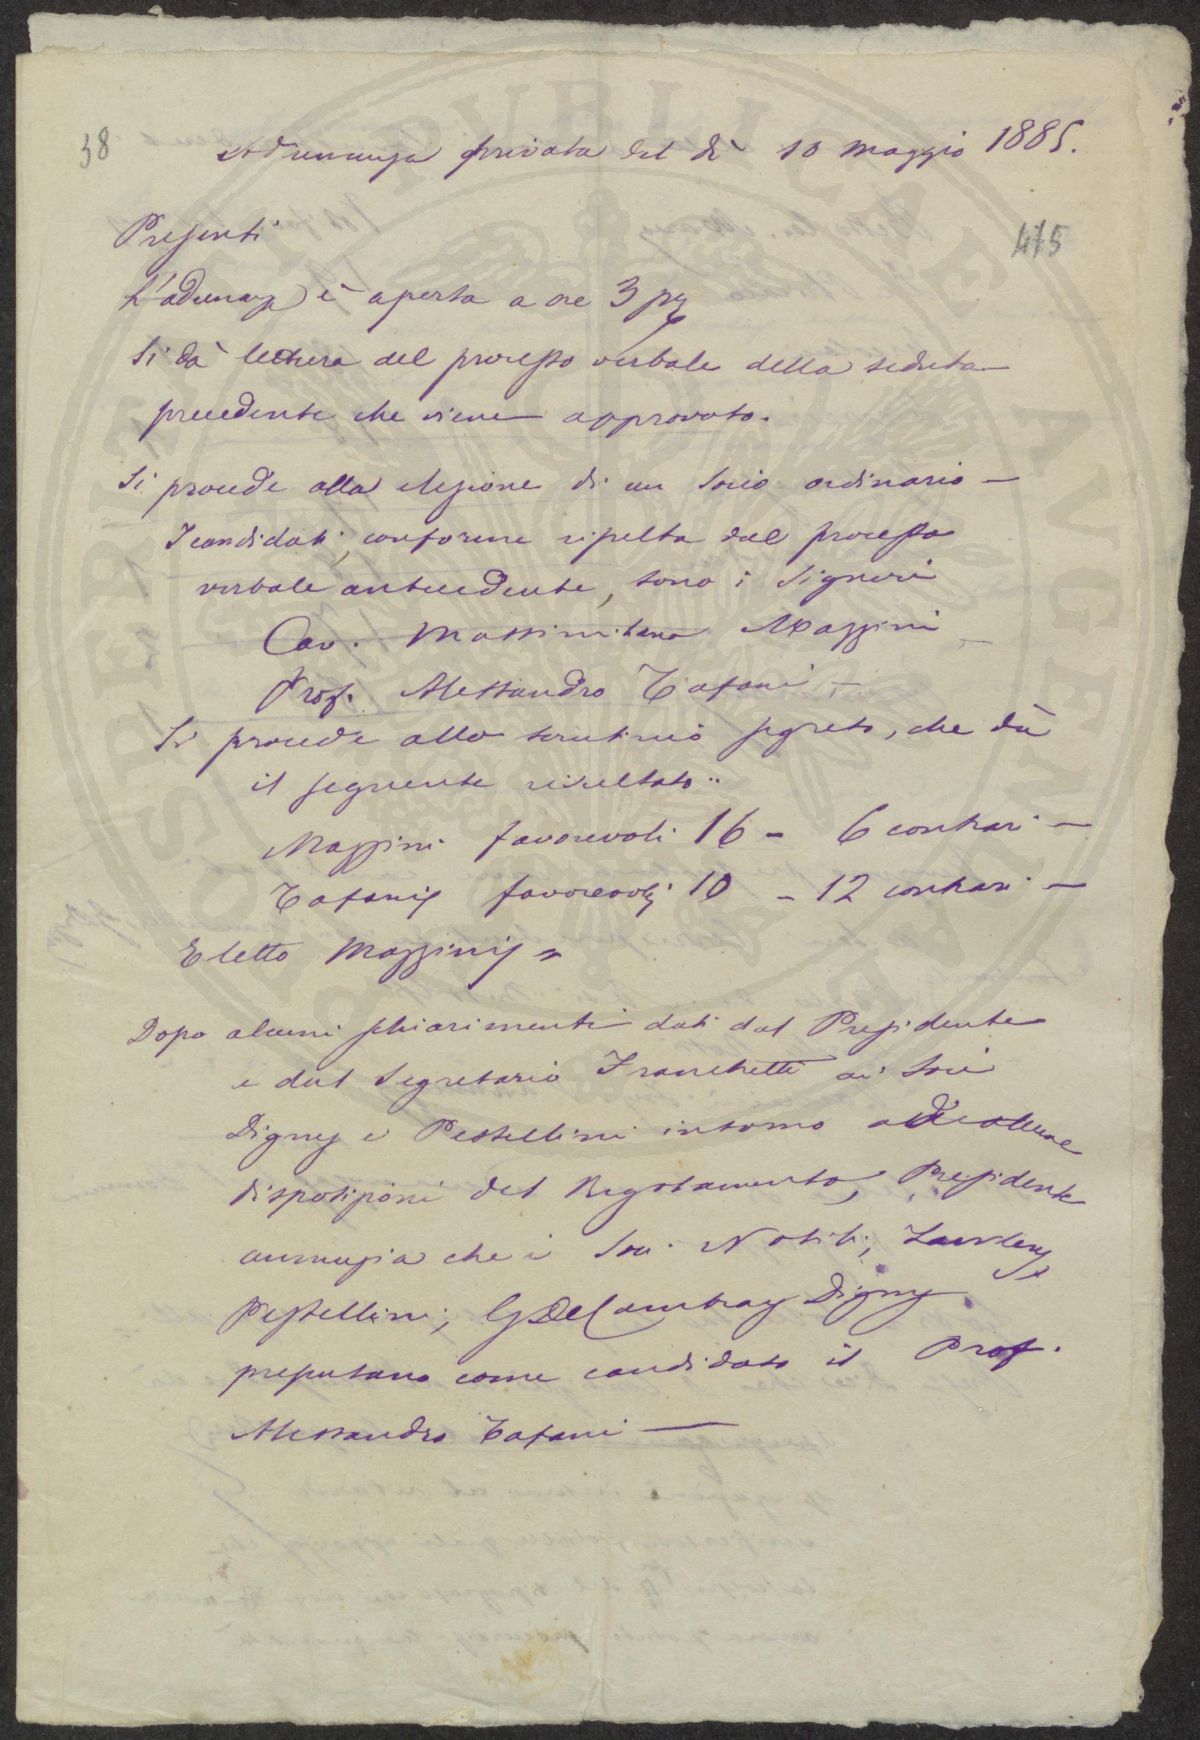 38
Adunanza privata del dì 10 Maggio 1885.
475
Presenti
L'adunanza è aperta a ore 3 pm
Si dà lettura del processo verbale della seduta
precedente che viene approvato.
Si procede alla elezione di un Socio ordinario —
I candidati, conforme risulta dal processo
verbale antecedente, sono i Signori
Cav. Massimiliano Mazzini —
Prof. Alessandro Tafani —
Si procede allo scrutinio segreto, che dà
il seguente risultato:
Mazzini favorevoli 16 — 6 contrari —
Tafani favorevoli 10 — 12 contrari —
Eletto Mazzini =
Dopo alcuni schiarimenti dati dal Presidente
e dal Segretario Franchetti ai Soci
Digny e Pestellini intorno ad alcune
disposizioni del Regolamento, Presidente
annunzia che i Soci Nobili,
Pestellini, G De Cambray Digny
presentano come candidato il Prof.
Alessandro Tafani —